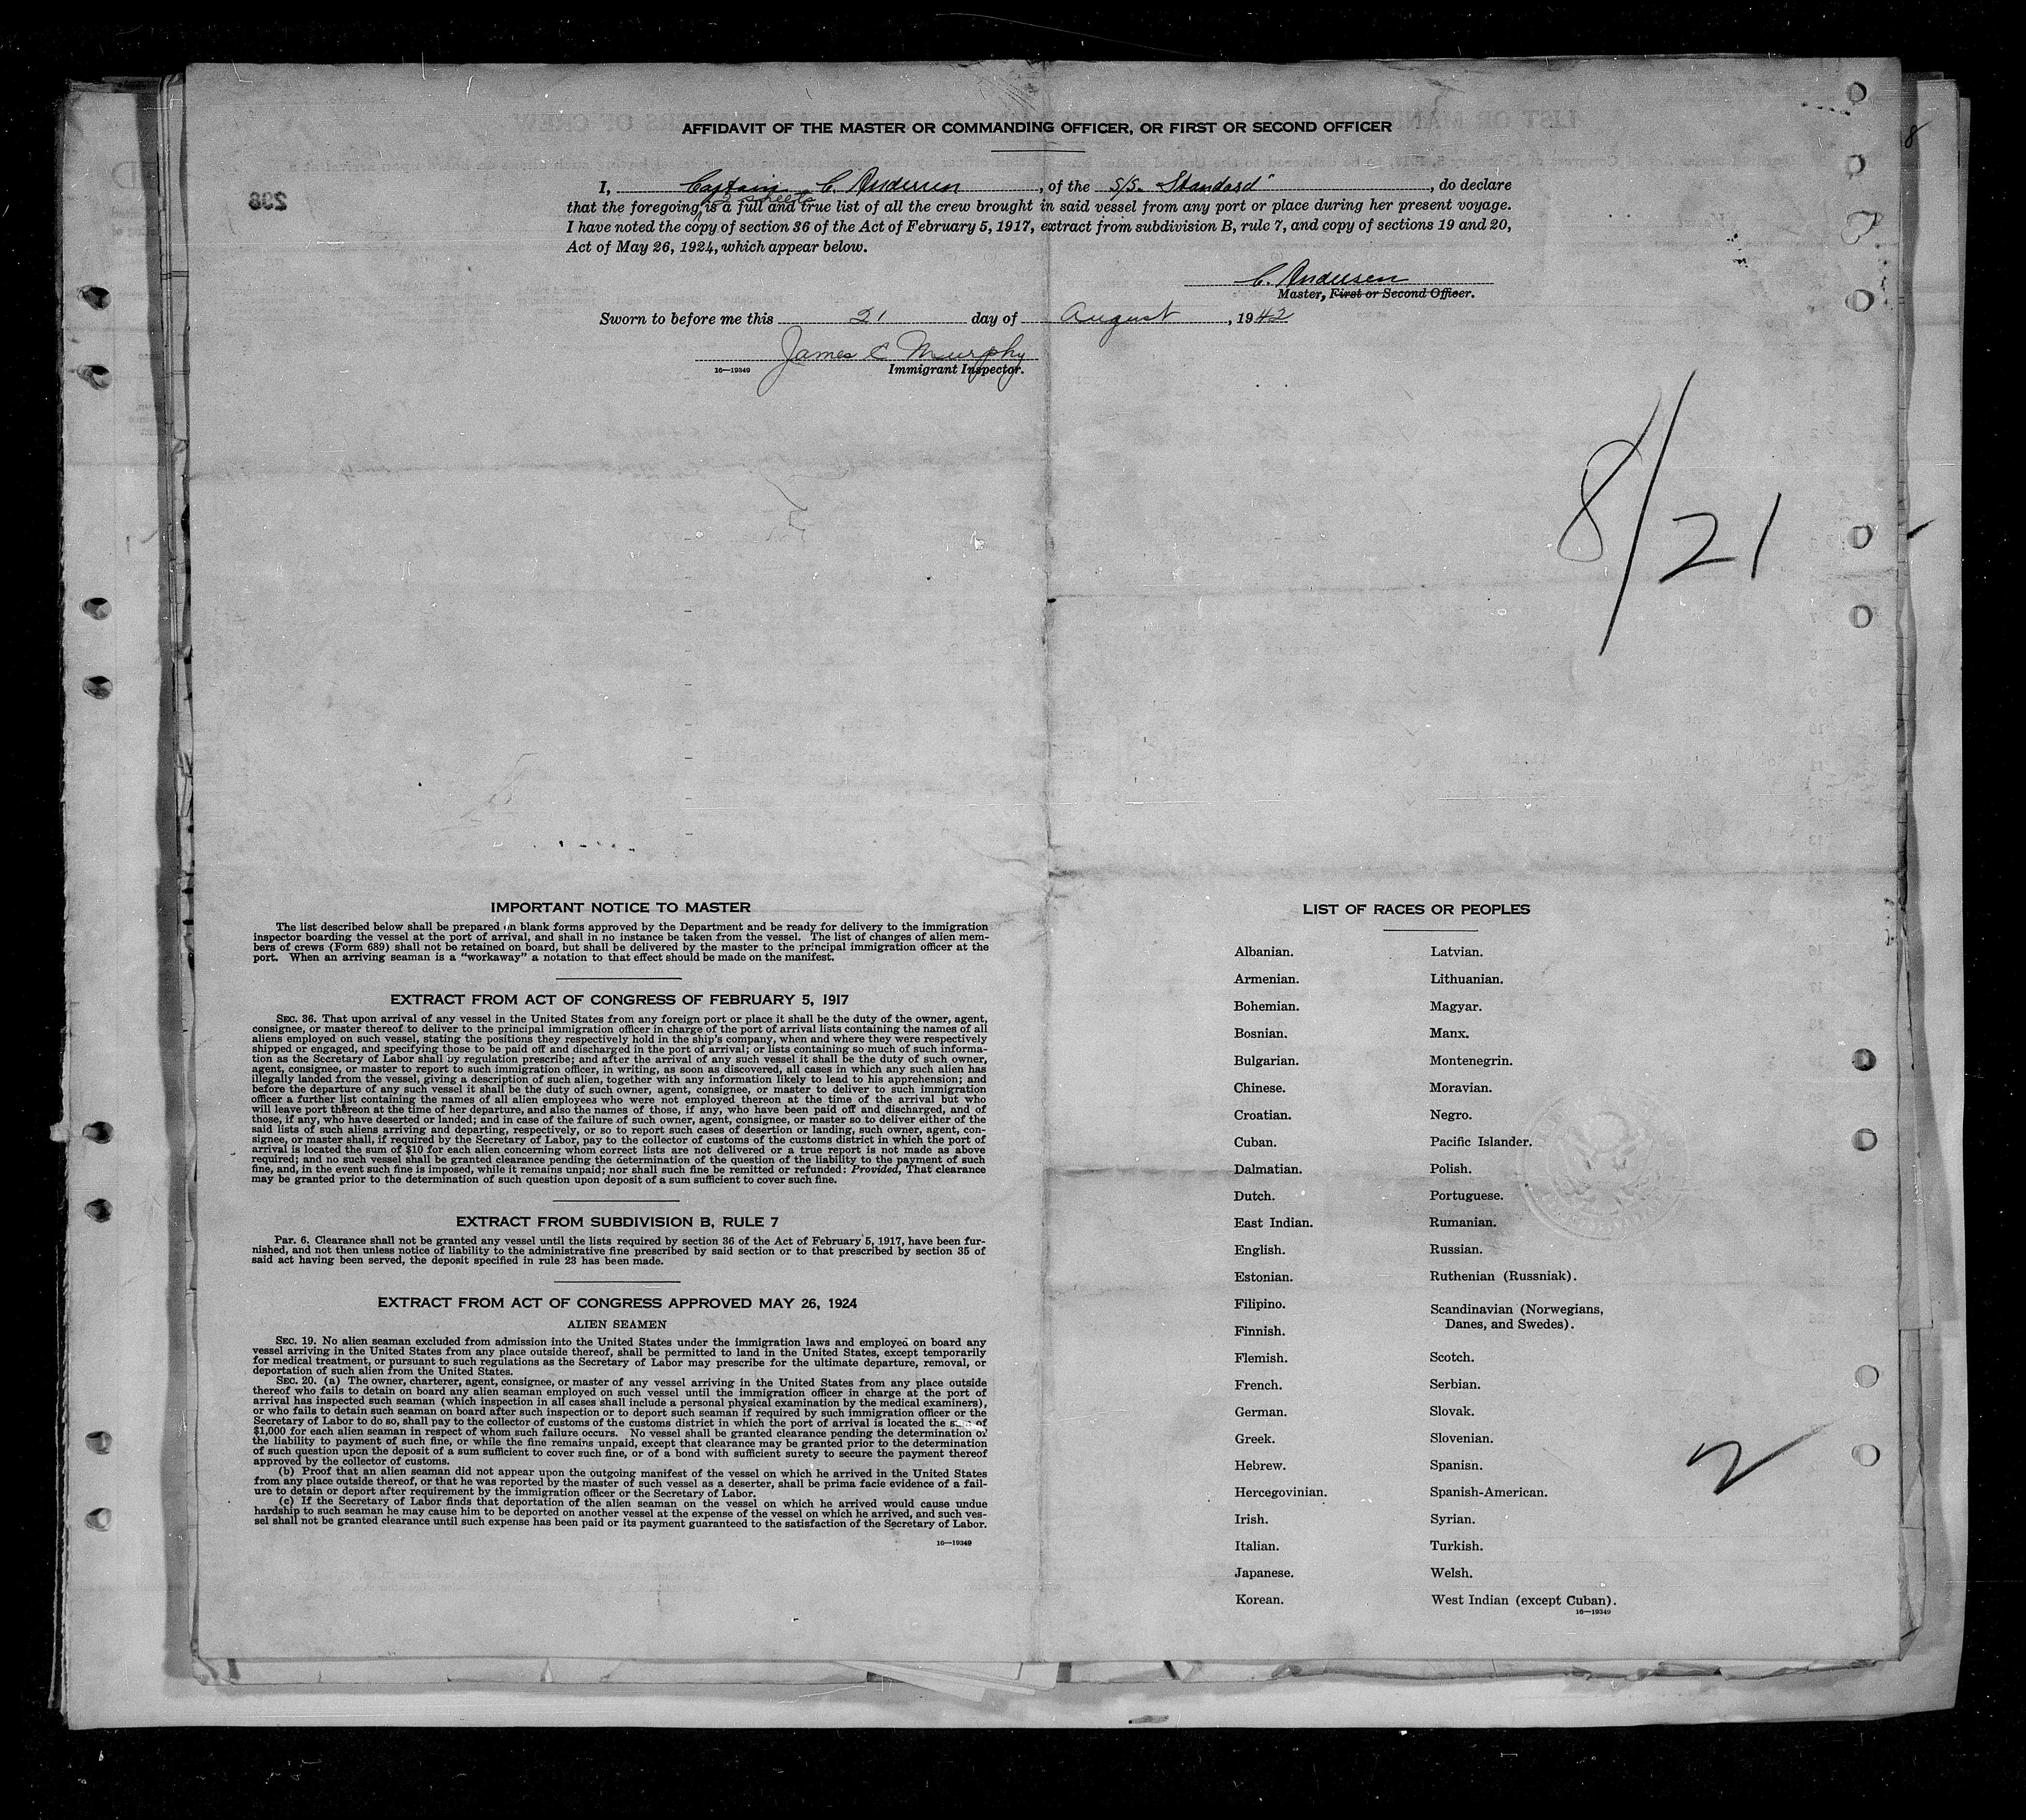 AFFIDAVIT OF THE MASTER OR COMMANDING OFFICER, OR FIRST OR SECOND OFFICER
I, Captain C. Andersen, of the S/S. "Standard", do declare
2 sheets
that the foregoing is a full and true list of all the crew brought in said vessel from any port or place during her present voyage.
I have noted the copy of section 36 of the Act of February 5, 1917, extract from subdivision B, rule 7, and copy of sections 19 and 20,
Act of May 26, 1924, which appear below.
C. Andersen
Master, First or Second Officer.
Sworn to before me this 21 day of August, 1942
James C Murphy
16—19349 Immigrant Inspector.
8/21
IMPORTANT NOTICE TO MASTER
The list described below shall be prepared on blank forms approved by the Department and be ready for delivery to the immigration
inspector boarding the vessel at the port of arrival, and shall in no instance be taken from the vessel. The list of changes of alien mem-
bers of crews (Form 689) shall not be retained on board, but shall be delivered by the master to the principal immigration officer at the
port. When an arriving seaman is a "workaway" a notation to that effect should be made on the manifest.
EXTRACT FROM ACT OF CONGRESS OF FEBRUARY 5, 1917
SEC. 36. That upon arrival of any vessel in the United States from any foreign port or place it shall be the duty of the owner, agent,
consignee, or master thereof to deliver to the principal immigration officer in charge of the port of arrival lists containing the names of all
aliens employed on such vessel, stating the positions they respectively hold in the ship's company, when and where they were respectively
shipped or engaged, and specifying those to be paid off and discharged in the port of arrival; or lists containing so much of such informa-
tion as the Secretary of Labor shall by regulation prescribe; and after the arrival of any such vessel it shall be the duty of such owner,
agent, consignee, or master to report to such immigration officer, in writing, as soon as discovered, all cases in which any such alien has
illegally landed from the vessel, giving a description of such alien, together with any information likely to lead to his apprehension; and
before the departure of any such vessel it shall be the duty of such owner, agent, consignee, or master to deliver to such immigration
officer a further list containing the names of all alien employees who were not employed thereon at the time of the arrival but who
will leave port thereon at the time of her departure, and also the names of those, if any, who have been paid off and discharged, and of
those, if any, who have deserted or landed; and in case of the failure of such owner, agent, consignee, or master so to deliver either of the
said lists of such aliens arriving and departing, respectively, or so to report such cases of desertion or landing, such owner, agent, con-
signee, or master shall, if required by the Secretary of Labor, pay to the collector of customs of the customs district in which the port of
arrival is located the sum of $10 for each alien concerning whom correct lists are not delivered or a true report is not made as above
required; and no such vessel shall be granted clearance pending the determination of the question of the liability to the payment of such
fine, and, in the event such fine is imposed, while it remains unpaid; nor shall such fine be remitted or refunded: Provided, That clearance
may be granted prior to the determination of such question upon deposit of a sum sufficient to cover such fine.
EXTRACT FROM SUBDIVISION B, RULE 7
Par. 6. Clearance shall not be granted any vessel until the lists required by section 36 of the Act of February 5, 1917, have been fur-
nished, and not then unless notice of liability to the administrative fine prescribed by said section or to that prescribed by section 35 of
said act having been served, the deposit specified in rule 23 has been made.
EXTRACT FROM ACT OF CONGRESS APPROVED MAY 26, 1924
ALIEN SEAMEN
SEC. 19. No alien seaman excluded from admission into the United States under the immigration laws and employed on board any
vessel arriving in the United States from any place outside thereof, shall be permitted to land in the United States, except temporarily
for medical treatment, or pursuant to such regulations as the Secretary of Labor may prescribe for the ultimate departure, removal, or
deportation of such alien from the United States.
SEC. 20. (a) The owner, charterer, agent, consignee, or master of any vessel arriving in the United States from any place outside
thereof who fails to detain on board any alien seaman employed on such vessel until the immigration officer in charge at the port of
arrival has inspected such seaman (which inspection in all cases shall include a personal physical examination by the medical examiners),
or who fails to detain such seaman on board after such inspection or to deport such seaman if required by such immigration officer or the
Secretary of Labor to do so, shall pay to the collector of customs of the customs district in which the port of arrival is located the sum of
$1,000 for each alien seaman in respect of whom such failure occurs. No vessel shall be granted clearance pending the determination of
the liability to payment of such fine, or while the fine remains unpaid, except that clearance may be granted prior to the determination
of such question upon the deposit of a sum sufficient to cover such fine, or of a bond with sufficient surety to secure the payment thereof
approved by the collector of customs.
(b) Proof that an alien seaman did not appear upon the outgoing manifest of the vessel on which he arrived in the United States
from any place outside thereof, or that he was reported by the master of such vessel as a deserter, shall be prima facie evidence of a fail-
ure to detain or deport after requirement by the immigration officer or the Secretary of Labor.
(c) If the Secretary of Labor finds that deportation of the alien seaman on the vessel on which he arrived would cause undue
hardship to such seaman he may cause him to be deported on another vessel at the expense of the vessel on which he arrived, and such ves-
sel shall not be granted clearance until such expense has been paid or its payment guaranteed to the satisfaction of the Secretary of Labor.
16—19349
LIST OF RACES OR PEOPLES
Albanian. Latvian.
Armenian. Lithuanian.
Bohemian. Magyar.
Bosnian. Manx.
Bulgarian. Montenegrin.
Chinese. Moravian.
Croatian. Negro.
Cuban. Pacific Islander.
Dalmatian. Polish.
Dutch. Portuguese.
East Indian. Rumanian.
English. Russian.
Estonian. Ruthenian (Russniak).
Filipino. Scandinavian (Norwegians,
Danes, and Swedes).
Finnish.
Flemish. Scotch.
French. Serbian.
German. Slovak.
Greek. Slovenian.
Hebrew. Spanish.
Hercegovinian. Spanish-American.
Irish. Syrian.
Italian. Turkish.
Japanese. Welsh.
Korean. West Indian (except Cuban).
16—19349
2